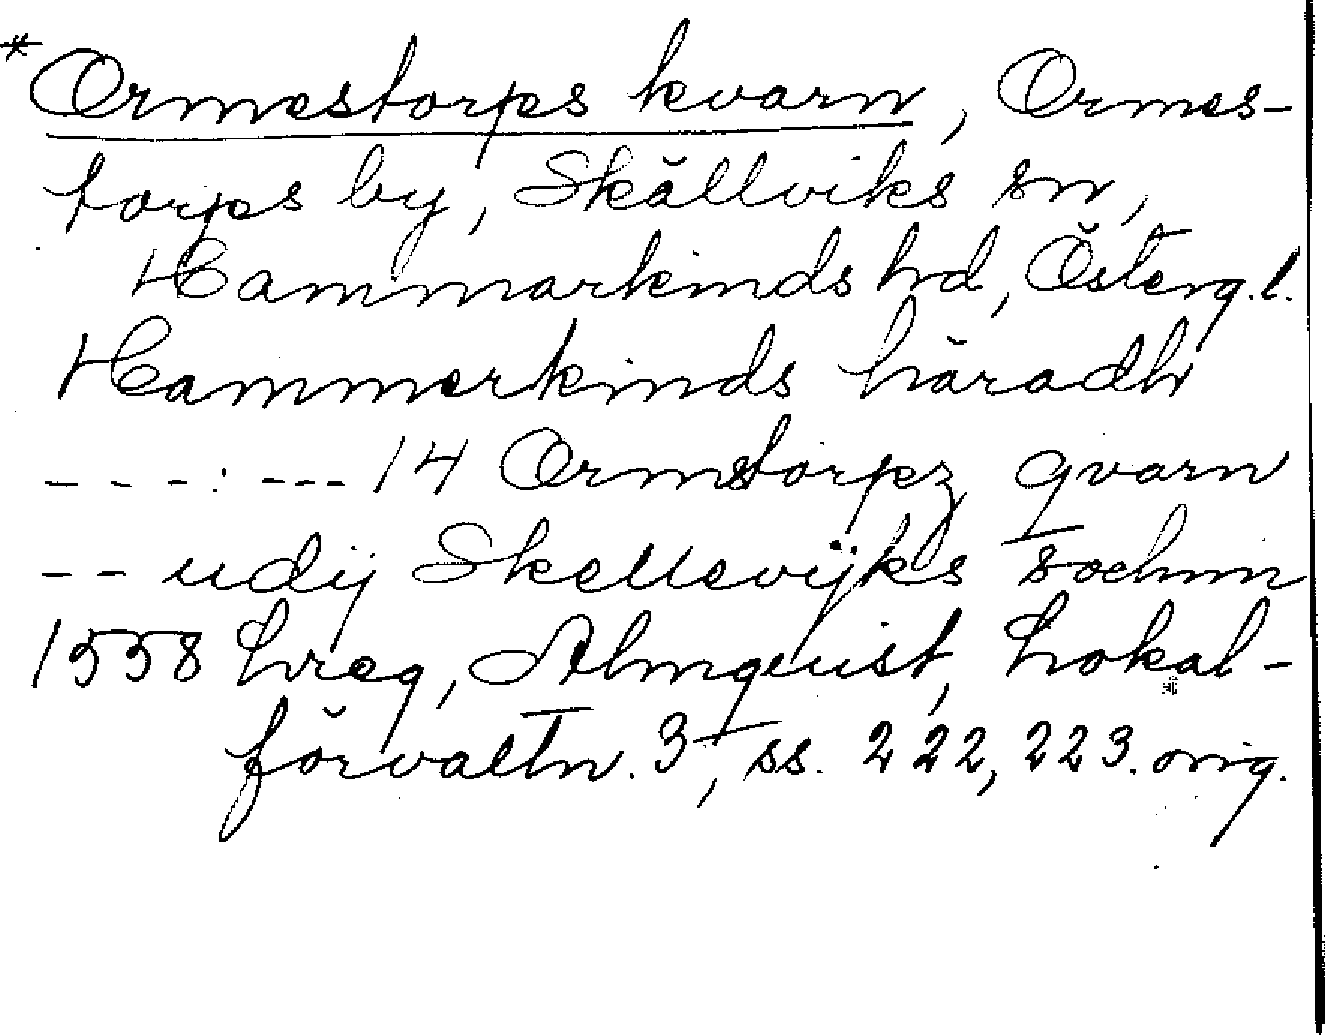 *Ormestorps kvarn, Ormes-
torps by, Skällviks sn,
Hammarkinds hd, Österg.l.
Hammerkinds häradh
- - - : - - - 14 Ormstorpz qvarn
- - udij Skellevijks sochnn
1558 Lreg, Almquist, Lokal-
förvaltn. 3, ss. 222, 223. orig.